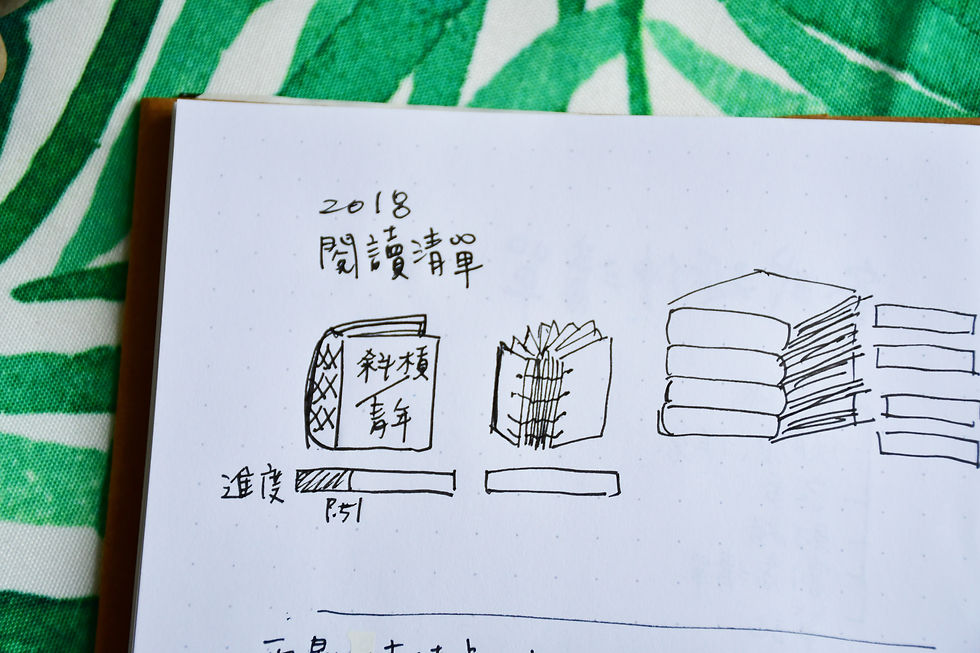 2018
閱讀清單
斜槓
青年
進度
P.51